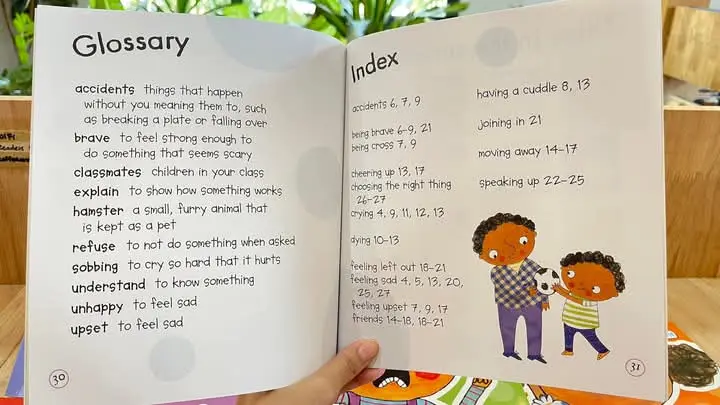 Glossary
accidents things that happen
without you meaning them to, such
as breaking a plate or falling over
brave to feel strong enough to
do something that seems scary
classmates children in your class
explain to show how something works
hamster a small, furry animal that
is kept as a pet
refuse to not do something when asked
sobbing to cry so hard that it hurts
understand to know something
unhappy to feel sad
upset to feel sad
30
Index
accidents 6, 7, 9
being brave 6–9, 21
being cross 7, 9
cheering up 13, 17
choosing the right thing
26–27
crying 4, 9, 11, 12, 13
dying 10–13
feeling left out 18–21
feeling sad 4, 5, 13, 20,
25, 27
feeling upset 7, 9, 17
friends 14–18, 18–21
having a cuddle 8, 13
joining in 21
moving away 14–17
speaking up 22–25
31